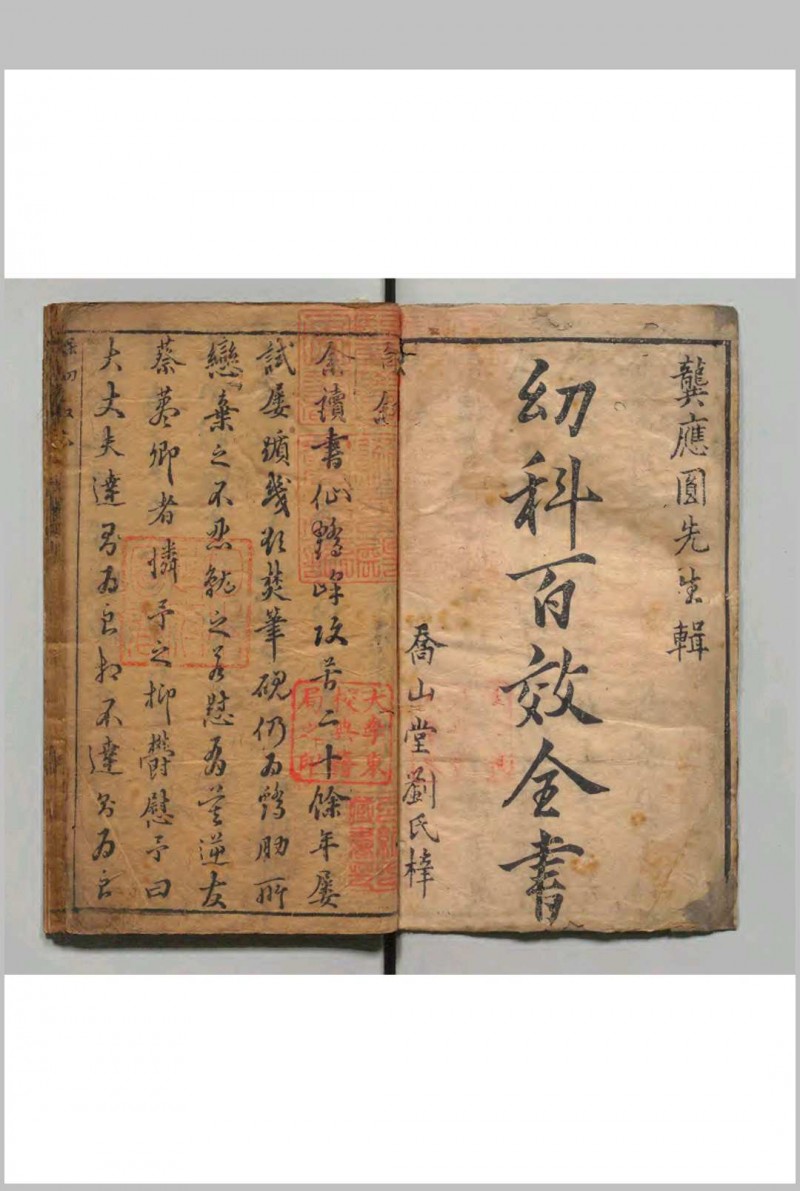 龔應圓先生輯
幼科百效全書
喬山堂劉氏梓
余讀書仙鶴峰攻苦二十餘年屢
試屢躓幾欲焚筆硯仍為鷄肋所
戀棄之不忍就之若慰為莫逆友
蔡蓋卿者憐予之抑鬱慰予曰
大丈夫達則為良相不達則為良
大學東
校典籍
局之印